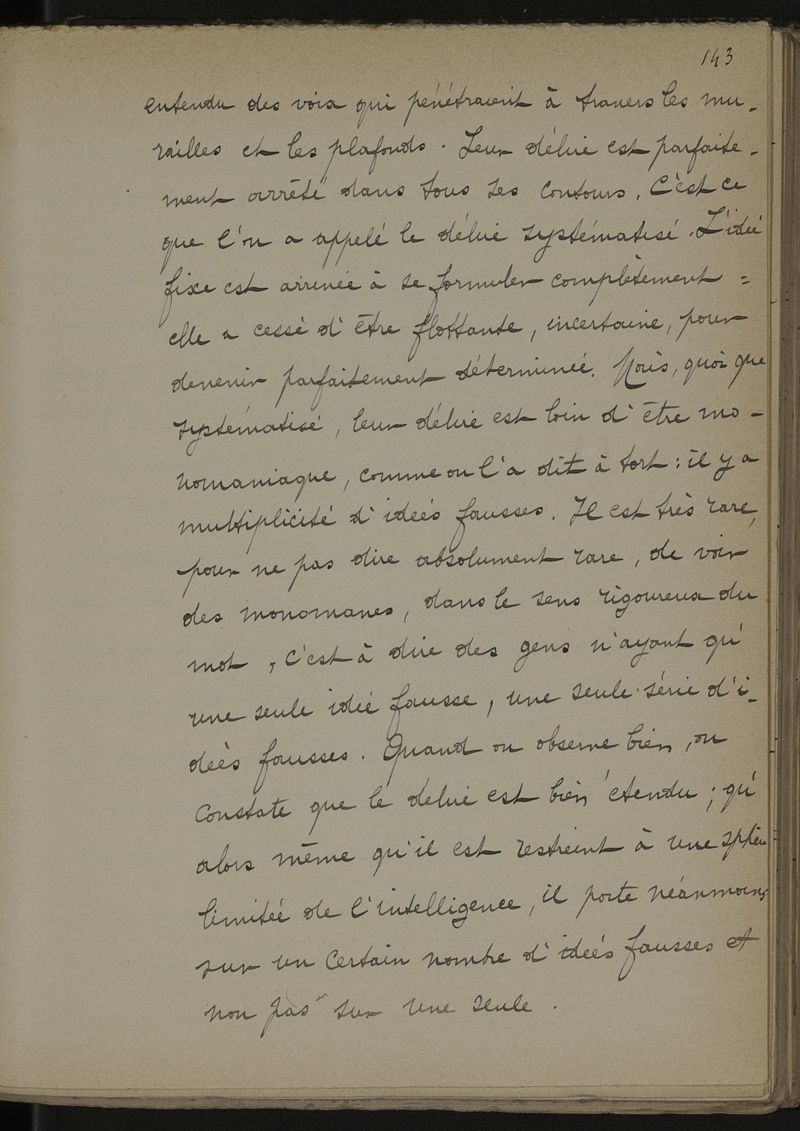 143
entendu des voix qui pénétraient à travers les mu-
railles et les plafonds. Leur délire est parfaite-
ment arrêté dans tous ses contours. C'est ce
que l'on a appelé le délire systématisé. L'idée
fixe est arrivée à se formuler complètement :
elle a cessé d'être flottante, incertaine, pour
devenir parfaitement déterminée. Mais, quoi que
systématisé, leur délire est loin d'être mo-
nomaniaque, comme on l'a dit à tort : il y a
multiplicité d'idées fausses. Il est très rare,
pour ne pas dire absolument rare, de voir
des monomanes, dans le sens rigoureux du
mot, c'est à dire des gens n'ayant qu'
une seule idée fausse, une seule série d'i-
dées fausses. Quand on observe bien, on
constate que le délire est bien étendu ; qu'
alors même qu'il est restreint à une sphère
limitée de l'intelligence, il porte néanmoins
sur un certain nombre d'idées fausses et
non pas sur une seule.